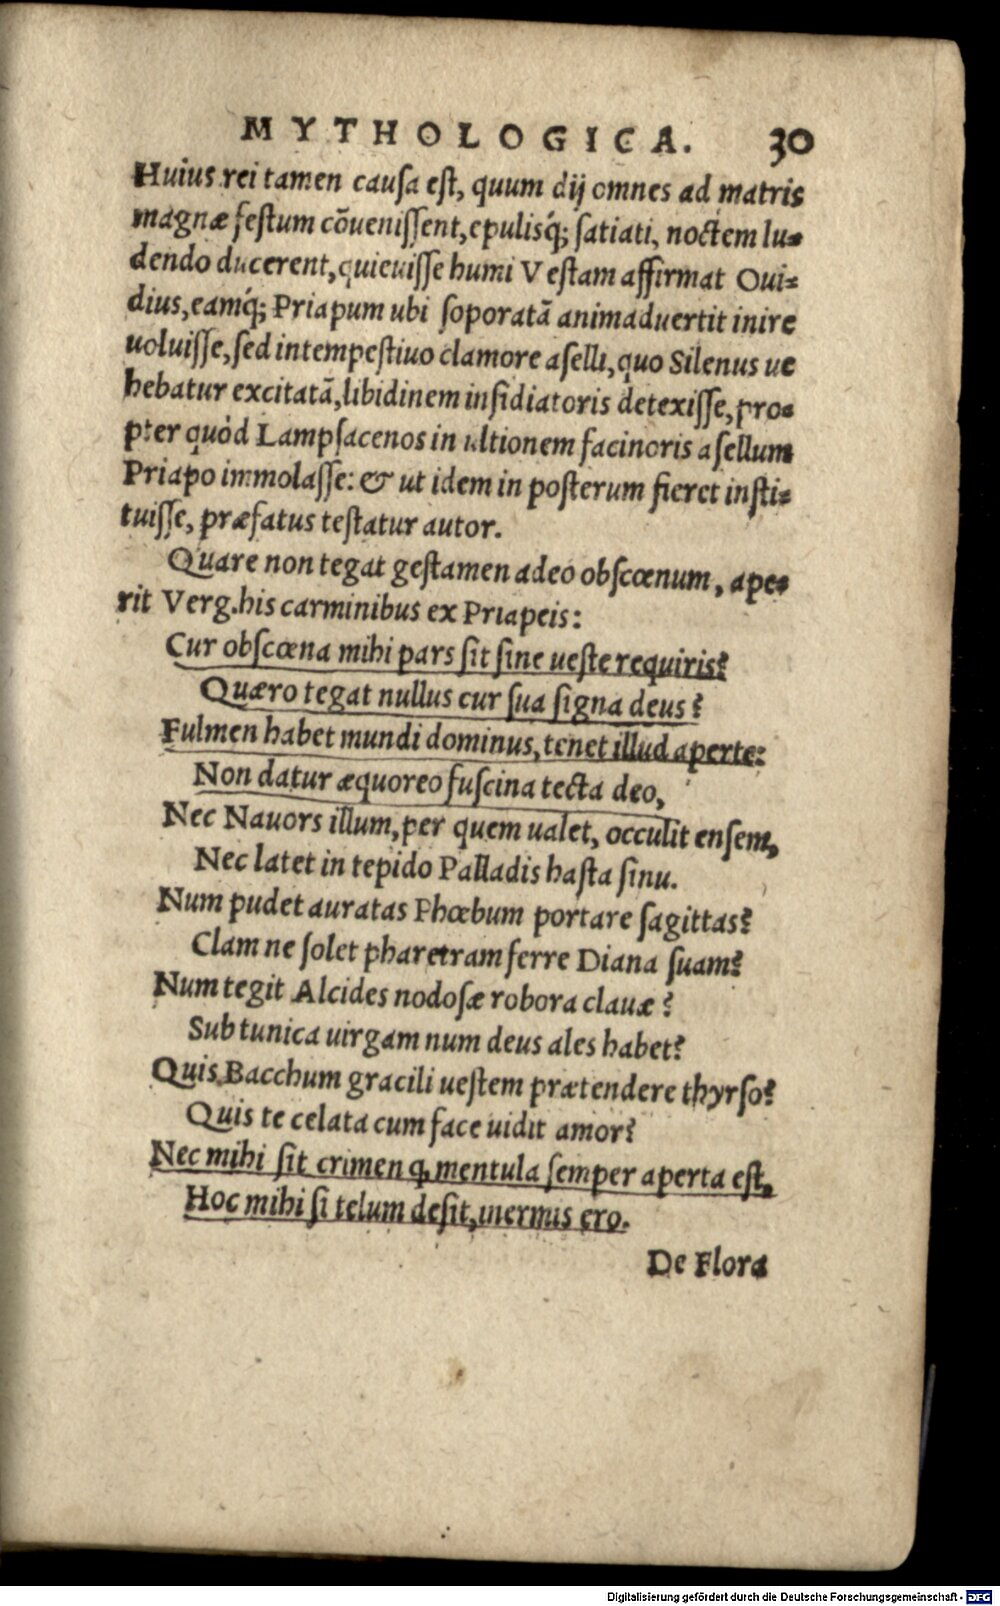 MYTHOLOGICA. 30
Huius rei tamen causa est, quum dij omnes ad matris
magnæ festum cõuenissent, epulisq́; satiati, noctem lu-
dendo ducerent, quieuisse humi Vestam affirmat Oui-
dius, eamq́; Priapum ubi soporatã animaduertit inire
uoluisse, sed intempestiuo clamore aselli, quo Silenus ue
hebatur excitatã, libidinem insidiatoris detexisse, pro-
pter quòd Lampsacenos in ultionem facinoris asellum
Priapo immolasse: & ut idem in posterum fieret insti-
tuisse, præfatus testatur autor.
Quare non tegat gestamen adeo obscœnum, ape-
rit Verg. his carminibus ex Priapeis:
Cur obscœna mihi pars sit sine ueste requiris?
Quæro tegat nullus cur sua signa deus?
Fulmen habet mundi dominus, tenet illud aperte:
Non datur æquoreo fuscina tecta deo,
Nec Nauors illum, per quem ualet, occulit ensem,
Nec latet in tepido Palladis hasta sinu.
Num pudet auratas Phœbum portare sagittas?
Clam ne solet pharetram ferre Diana suam?
Num tegit Alcides nodosæ robora clauæ?
Sub tunica uirgam num deus ales habet?
Quis Bacchum gracili uestem prætendere thyrso?
Quis te celata cum face uidit amor?
Nec mihi sit crimen ꝙ mentula semper aperta est,
Hoc mihi si telum desit, inermis ero.
De Flora
Digitalisierung gefördert durch die Deutsche Forschungsgemeinschaft - DFG